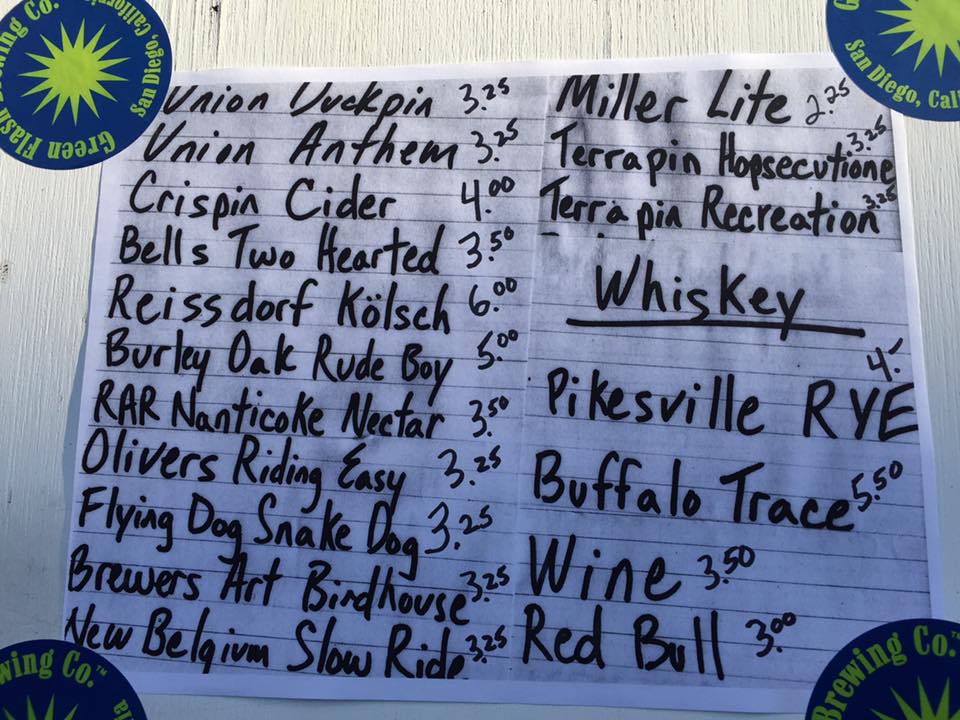 Union Duckpin 3.25
Union Anthem 3.25
Crispin Cider 4.00
Bells Two Hearted 3.50
Reissdorf Kölsch 6.00
Burley Oak Rude Boy 5.00
RAR Nanticoke Nectar 3.50
Olivers Riding Easy 3.25
Flying Dog Snake Dog 3.25
Brewers Art Birdhouse 3.25
New Belgium Slow Ride 3.25
Miller Lite 2.25
Terrapin Hopsecutione 3.25
Terrapin Recreation 3.25
Whiskey
Pikesville RYE 4.-
Buffalo Trace 5.50
Wine 3.50
Red Bull 3.00
Green Flash Brewing Co.
San Diego, California
San Diego, Cali
Brewing Co.™
Brewing Co.™